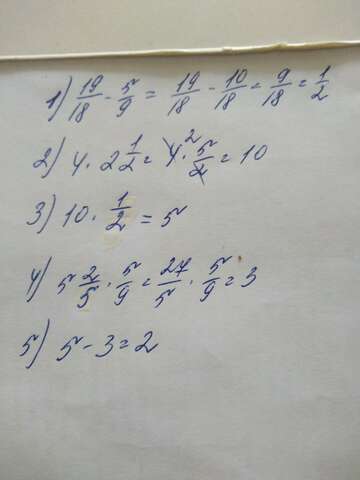 1) 19/18 - 5/9 = 19/18 - 10/18 = 9/18 = 1/2
2) 4 · 2 1/2 = 4 2 · 5/2 = 10
3) 10 · 1/2 = 5
4) 5 2/5 · 5/9 = 27/5 · 5/9 = 3
5) 5 - 3 = 2